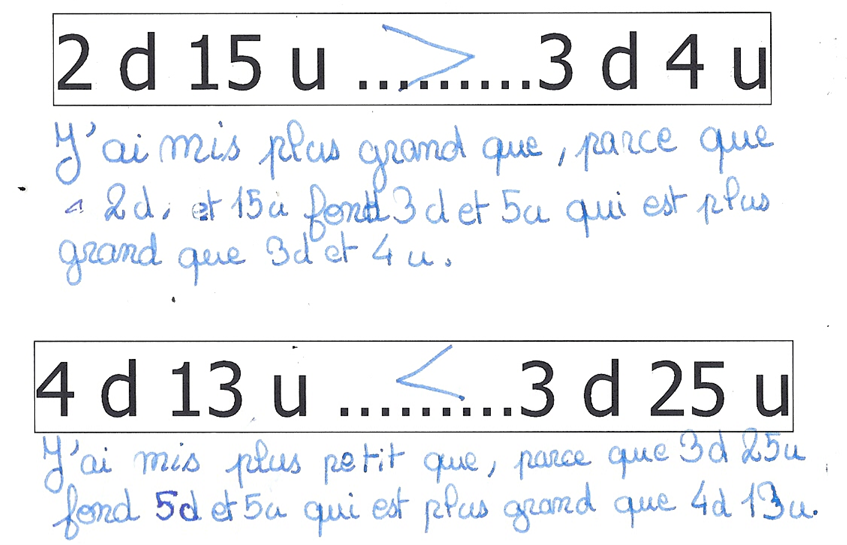 2 d 15 u ...>...3 d 4 u
J'ai mis plus grand que, parce que
2d, et 15u fond 3d et 5u qui est plus
grand que 3d et 4u.
4 d 13 u ...<...3 d 25 u
J'ai mis plus petit que, parce que 3d 25u
fond 5d et 5u qui est plus grand que 4d 13u.